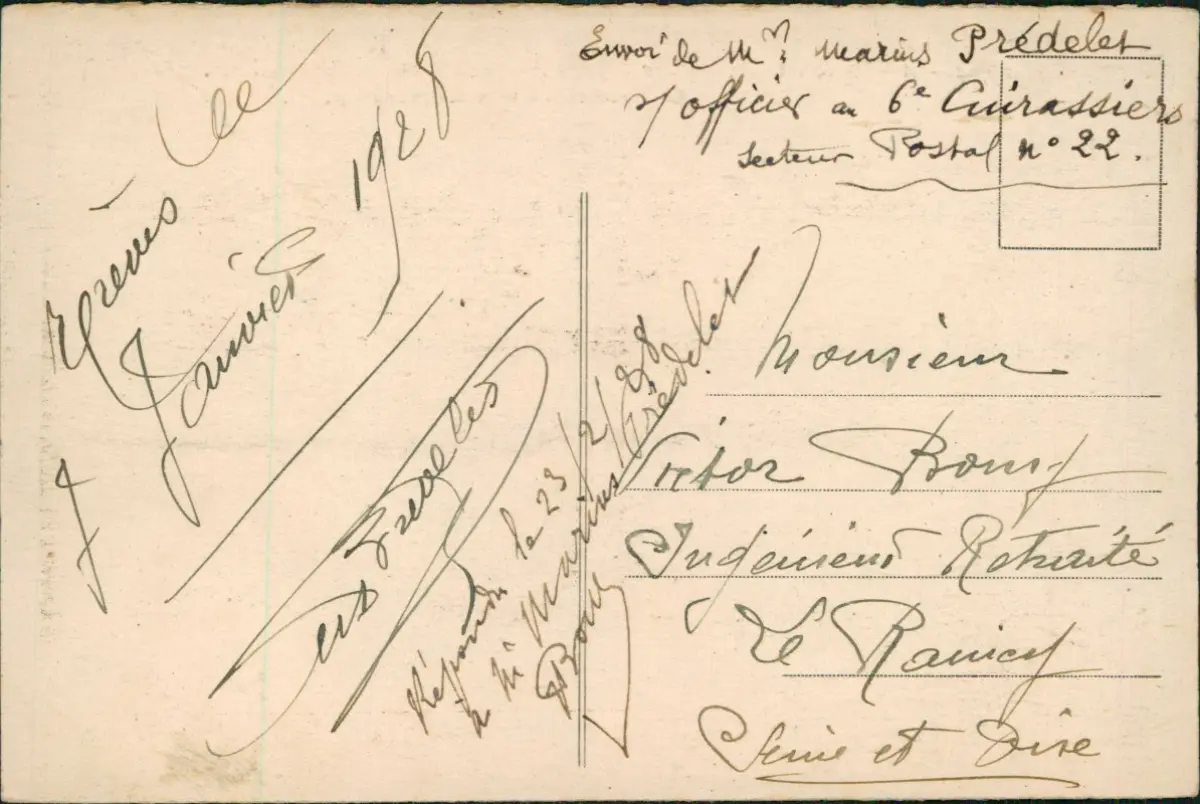 Trèves le
7 Janvier 1928
Envoi de Mr Marius Prédelet
s/officier au 6e Cuirassiers
secteur Postal n° 22.
Répondu le 23/2/28
à Mr Marius Prédelet
Bony
Monsieur
Victor Bony
Ingénieur Retraité
Le Raincy
Seine et Oise